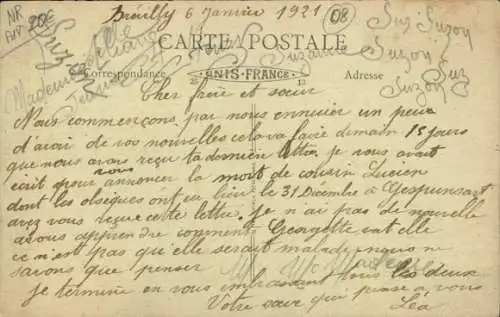 NR
20€
08
6 Janvier 1921
CARTE POSTALE
Correspondance
UNIS-FRANCE
Adresse
Suzon
Suzanne
Suzon
Suzon
Suz
Suzon
Mademoiselle
Cher frère et sœur
Nous commençons par nous ennuier un peux
d'avoir de vos nouvelles cela va faire demain 15 jours
que nous avons reçu ta dernière lettre je vous avait
écrit pour vous annoncer la mort de cousin Lucien
dont les obsèques ont eu lieu le 31 Décembre à Gespunsart
avez vous reçue cette lettre. je n'ai pas de nouvelle
à vous apprendre comment Georgette vat elle
ce n'est pas qu'elle serait malade nous ne
savons que penser
je termine en vous embrassant tous les deux
Votre sœur qui pense a vous
Léa